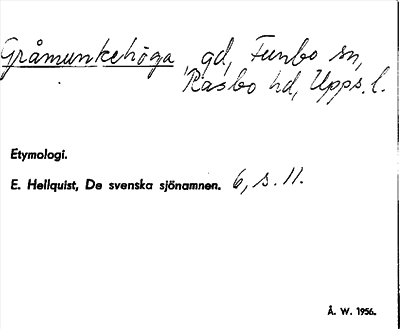 Gråmunkehöga, gd, Funbo sn,
Rasbo hd, Upps. l.
Etymologi.
E. Hellquist, De svenska sjönamnen. 6, s. 11.
Å. W. 1956.